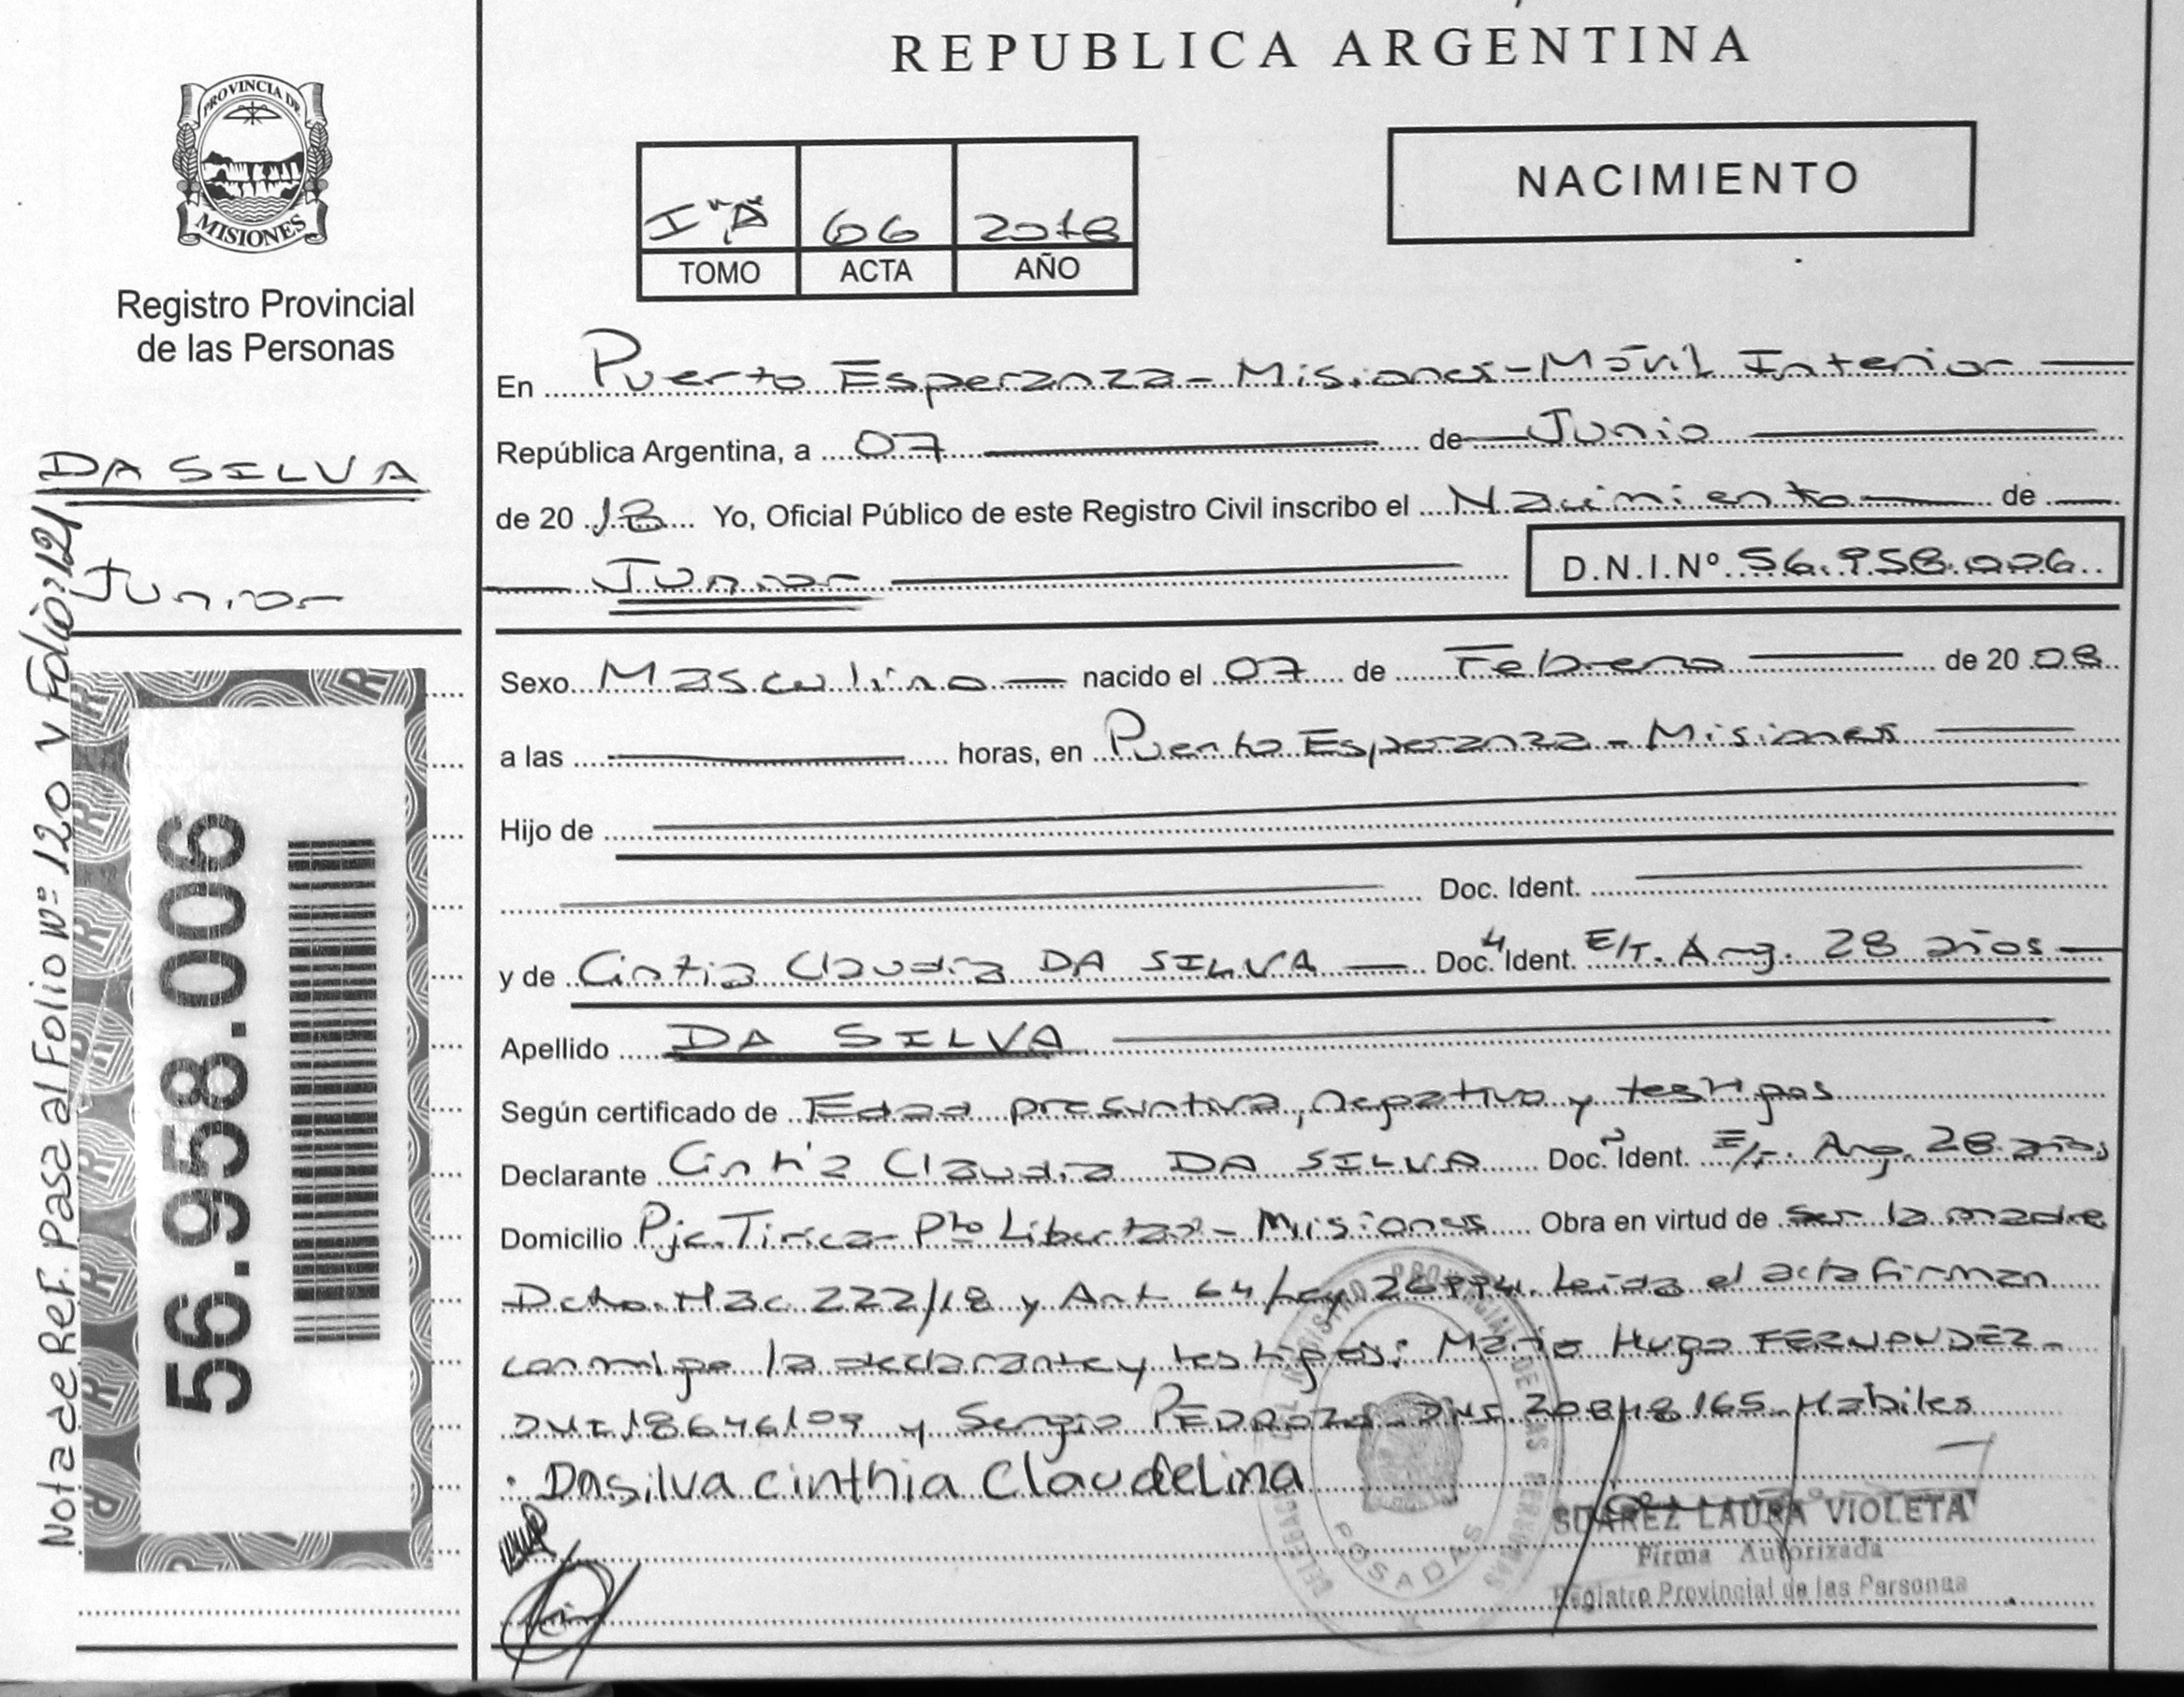 REPUBLICA ARGENTINA
PROVINCIA DE
MISIONES
Registro Provincial
de las Personas
NACIMIENTO
I "A" 66 2018
TOMO ACTA AÑO
DA SILVA
Junior
Nota de Ref. Pasa al Folio Nº 120 y Folio: 121
56.958.006
En Puerto Esperanza - Misiones - Móvil Interior
República Argentina, a 07 de Junio
de 20 18 Yo, Oficial Público de este Registro Civil inscribo el Nacimiento de
Junior D.N.I.Nº 56.958.006
Sexo Masculino nacido el 07 de Febrero de 20 08
a las horas, en Puerto Esperanza - Misiones
Hijo de
Doc. Ident.
y de Cintia Claudia DA SILVA Doc. Ident. E/T. Arg. 28 años
Apellido DA SILVA
Según certificado de Edad presuntiva, negativo y testigos
Declarante Cintia Claudia DA SILVA Doc. Ident. E/T. Arg. 28 años
Domicilio Pje. Tirica - Pto Libertad - Misiones Obra en virtud de ser la madre
Dcto. Nac 222/18 y Art 64/Ley 26994. Leida el acta firman
conmigo la declarante y testigos: Mario Hugo FERNANDEZ -
DNI 18646109 y Sergio PEDROZO DNI 20848165 Habiles
Dasilva Cinthia Claudelina
DELEGAC REGISTRO PROVINCIAL DE LAS PERSONAS
POSADAS
SUAREZ LAURA VIOLETA
Firma Autorizada
Registro Provincial de las Personas